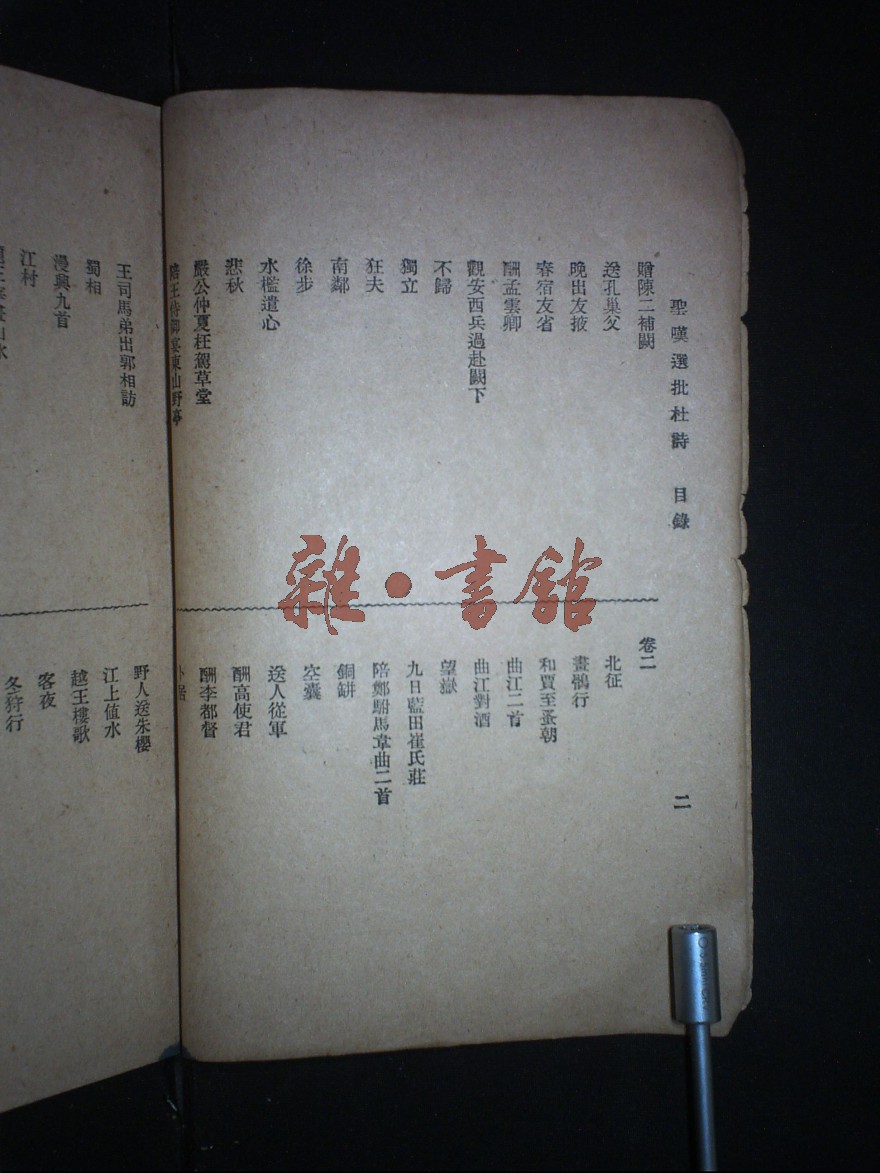 聖嘆選批杜詩 目錄
二
贈陳二補闕
送孔巢父
晚出友掖
春宿友省
酬孟雲卿
觀安西兵過赴闕下
不歸
獨立
狂夫
南鄰
徐步
水檻遣心
悲秋
嚴公仲夏枉駕草堂
陪王侍御宴東山野亭
卷二
北征
畫鶻行
和賈至蚤朝
曲江二首
曲江對酒
望嶽
九日藍田崔氏莊
陪鄭駙馬韋曲二首
銅缾
空囊
送人從軍
酬高使君
酬李都督
卜居
王司馬弟出郭相訪
蜀相
漫興九首
江村
野人送朱櫻
江上值水
越王樓歌
客夜
冬狩行
雜·書館